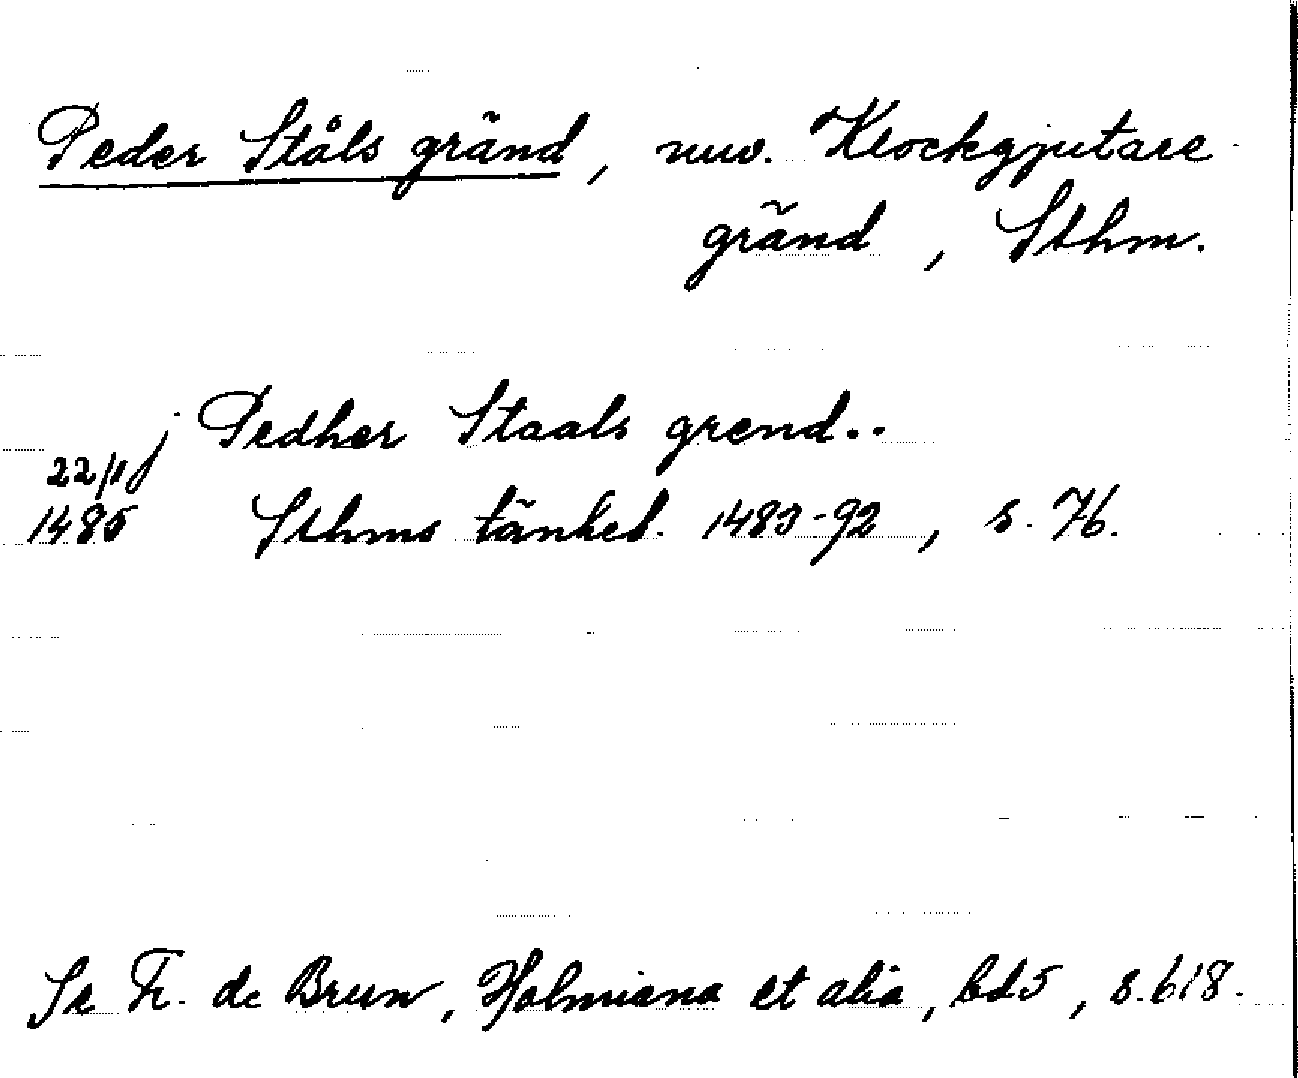 Peder Ståls gränd, nuv. Klockgjutare-
gränd, Sthm.
j Pedher Staals grend..
22/11
1485 Sthms tänkeb. 1483-92, s. 76.
Se Fr. de Brun, Holmiana et alia, bd 5, s. 618.